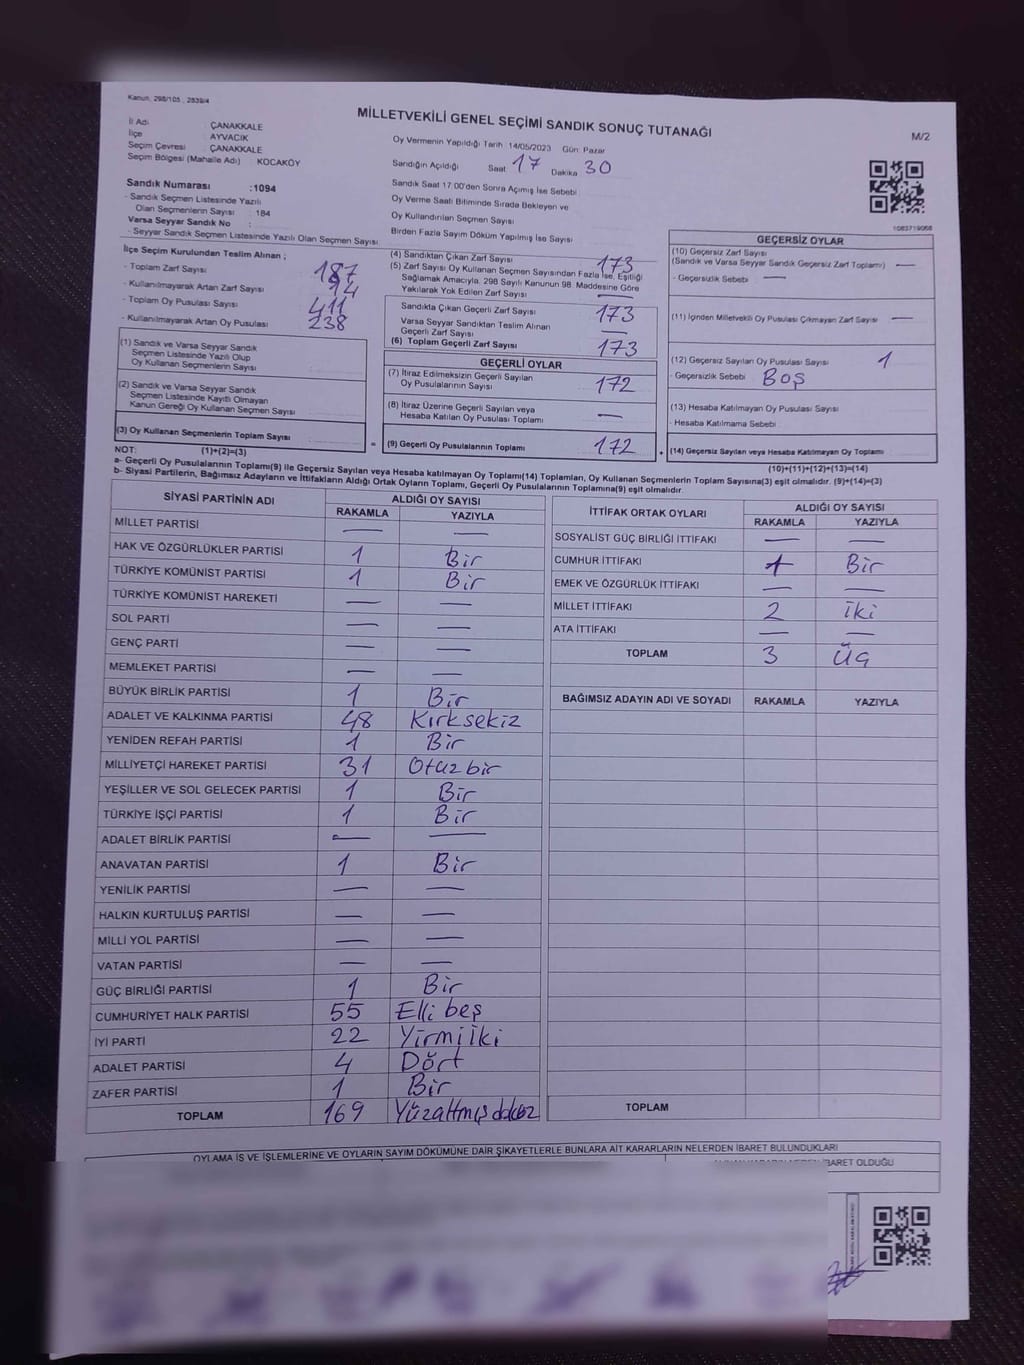 Kanun, 298/105 , 2839/4
MİLLETVEKİLİ GENEL SEÇİMİ SANDIK SONUÇ TUTANAĞI
M/2
İl Adı : ÇANAKKALE
İlçe : AYVACIK
Seçim Çevresi : ÇANAKKALE
Seçim Bölgesi (Mahalle Adı) : KOCAKÖY
Oy Vermenin Yapıldığı Tarih :14/05/2023 Gün: Pazar
Sandığın Açıldığı Saat 17 Dakika 30
Sandık Numarası :1094
- Sandık Seçmen Listesinde Yazılı
Olan Seçmenlerin Sayısı : 184
Varsa Seyyar Sandık No :
- Seyyar Sandık Seçmen Listesinde Yazılı Olan Seçmen Sayısı
Sandık Saat 17:00'den Sonra Açımış İse Sebebi
Oy Verme Saati Bitiminde Sırada Bekleyen ve
Oy Kullandırılan Seçmen Sayısı
Birden Fazla Sayım Döküm Yapılmış İse Sayısı
1083719066
İlçe Seçim Kurulundan Teslim Alınan ;
- Toplam Zarf Sayısı 187
- Kullanılmayarak Artan Zarf Sayısı 14
- Toplam Oy Pusulası Sayısı 411
- Kullanılmayarak Artan Oy Pusulası 238
(1) Sandık ve Varsa Seyyar Sandık
Seçmen Listesinde Yazılı Olup
Oy Kullanan Seçmenlerin Sayısı
(2) Sandık ve Varsa Seyyar Sandık
Seçmen Listesinde Kayıtlı Olmayan
Kanun Gereği Oy Kullanan Seçmen Sayısı
(3) Oy Kullanan Seçmenlerin Toplam Sayısı
NOT: (1)+(2)=(3)
(4) Sandıktan Çıkan Zarf Sayısı 173
(5) Zarf Sayısı Oy Kullanan Seçmen Sayısından Fazla İse, Eşitliği
Sağlamak Amacıyla, 298 Sayılı Kanunun 98. Maddesine Göre
Yakılarak Yok Edilen Zarf Sayısı —
Sandıkta Çıkan Geçerli Zarf Sayısı 173
Varsa Seyyar Sandıktan Teslim Alınan
Geçerli Zarf Sayısı —
(6) Toplam Geçerli Zarf Sayısı 173
GEÇERLİ OYLAR
(7) İtiraz Edilmeksizin Geçerli Sayılan
Oy Pusulalarının Sayısı 172
(8) İtiraz Üzerine Geçerli Sayılan veya
Hesaba Katılan Oy Pusulası Toplamı —
= (9) Geçerli Oy Pusulalarının Toplamı 172
GEÇERSİZ OYLAR
(10) Geçersiz Zarf Sayısı
(Sandık ve Varsa Seyyar Sandık Geçersiz Zarf Toplamı) —
- Geçersizlik Sebebi —
(11) İçinden Milletvekili Oy Pusulası Çıkmayan Zarf Sayısı —
(12) Geçersiz Sayılan Oy Pusulası Sayısı 1
- Geçersizlik Sebebi Boş
(13) Hesaba Katılmayan Oy Pusulası Sayısı
- Hesaba Katılmama Sebebi
+ (14) Geçersiz Sayılan veya Hesaba Katılmayan Oy Toplamı
(10)+(11)+(12)+(13)=(14)
a- Geçerli Oy Pusulalarının Toplamı(9) ile Geçersiz Sayılan veya Hesaba katılmayan Oy Toplamı(14) Toplamları, Oy Kullanan Seçmenlerin Toplam Sayısına(3) eşit olmalıdır. (9)+(14)=(3)
b- Siyasi Partilerin, Bağımsız Adayların ve İttifakların Aldığı Ortak Oyların Toplamı, Geçerli Oy Pusulalarının Toplamına(9) eşit olmalıdır.
SİYASİ PARTİNİN ADI ALDIĞI OY SAYISI
RAKAMLA YAZIYLA
MİLLET PARTİSİ — —
HAK VE ÖZGÜRLÜKLER PARTİSİ 1 Bir
TÜRKİYE KOMÜNİST PARTİSİ 1 Bir
TÜRKİYE KOMÜNİST HAREKETİ — —
SOL PARTİ — —
GENÇ PARTİ — —
MEMLEKET PARTİSİ — —
BÜYÜK BİRLİK PARTİSİ 1 Bir
ADALET VE KALKINMA PARTİSİ 48 Kırksekiz
YENİDEN REFAH PARTİSİ 1 Bir
MİLLİYETÇİ HAREKET PARTİSİ 31 Otuzbir
YEŞİLLER VE SOL GELECEK PARTİSİ 1 Bir
TÜRKİYE İŞÇİ PARTİSİ 1 Bir
ADALET BİRLİK PARTİSİ — —
ANAVATAN PARTİSİ 1 Bir
YENİLİK PARTİSİ — —
HALKIN KURTULUŞ PARTİSİ — —
MİLLİ YOL PARTİSİ — —
VATAN PARTİSİ — —
GÜÇ BİRLİĞİ PARTİSİ 1 Bir
CUMHURİYET HALK PARTİSİ 55 Elli beş
İYİ PARTİ 22 Yirmi iki
ADALET PARTİSİ 4 Dört
ZAFER PARTİSİ 1 Bir
TOPLAM 169
İTTİFAK ORTAK OYLARI ALDIĞI OY SAYISI
RAKAMLA YAZIYLA
SOSYALİST GÜÇ BİRLİĞİ İTTİFAKI — —
CUMHUR İTTİFAKI 1 Bir
EMEK VE ÖZGÜRLÜK İTTİFAKI — —
MİLLET İTTİFAKI 2 iki
ATA İTTİFAKI — —
TOPLAM 3 Üç
BAĞIMSIZ ADAYIN ADI VE SOYADI RAKAMLA YAZIYLA
TOPLAM
OYLAMA İŞ VE İŞLEMLERİNE VE OYLARIN SAYIM DÖKÜMÜNE DAİR ŞİKAYETLERLE BUNLARA AİT KARARLARIN NELERDEN İBARET BULUNDUKLARI
İBARET OLDUĞU